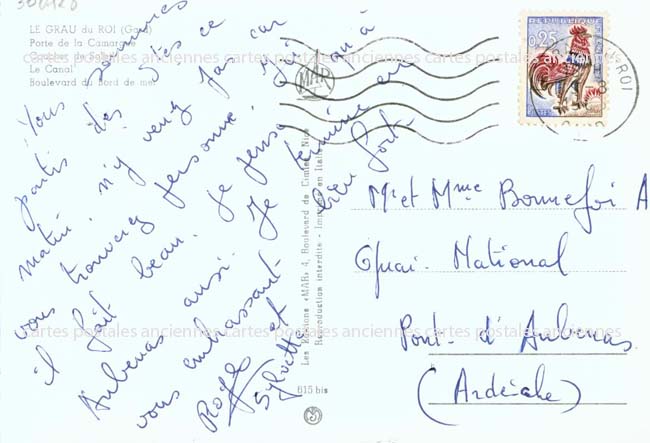 LE GRAU du ROI (Gard)
Porte de la Camargue
Le Canal
Boulevard du Bord de mer
Nous sommes
partis dès ce
matin. n'y venez pas car
vous trouverez personne.
il fait beau. Je pense qu'à
Aubenas aussi. Je termine en
vous embrassant bien fort.
Roger et
Sylvette
Les Editions «MAR» 4, Boulevard de Cimiez Nice
Reproduction interdite - Imprimé en Italie
615 bis
MAR
REPUBLIQUE
0,25
POSTES
ROI
Mr et Mme Bonnefoi A
Quai. National
Pont. d'Aubenas
(Ardèche)
cartes postales anciennes cartes postales anciennes cartes postales anciennes
cartes postales anciennes cartes postales anciennes cartes postales anciennes